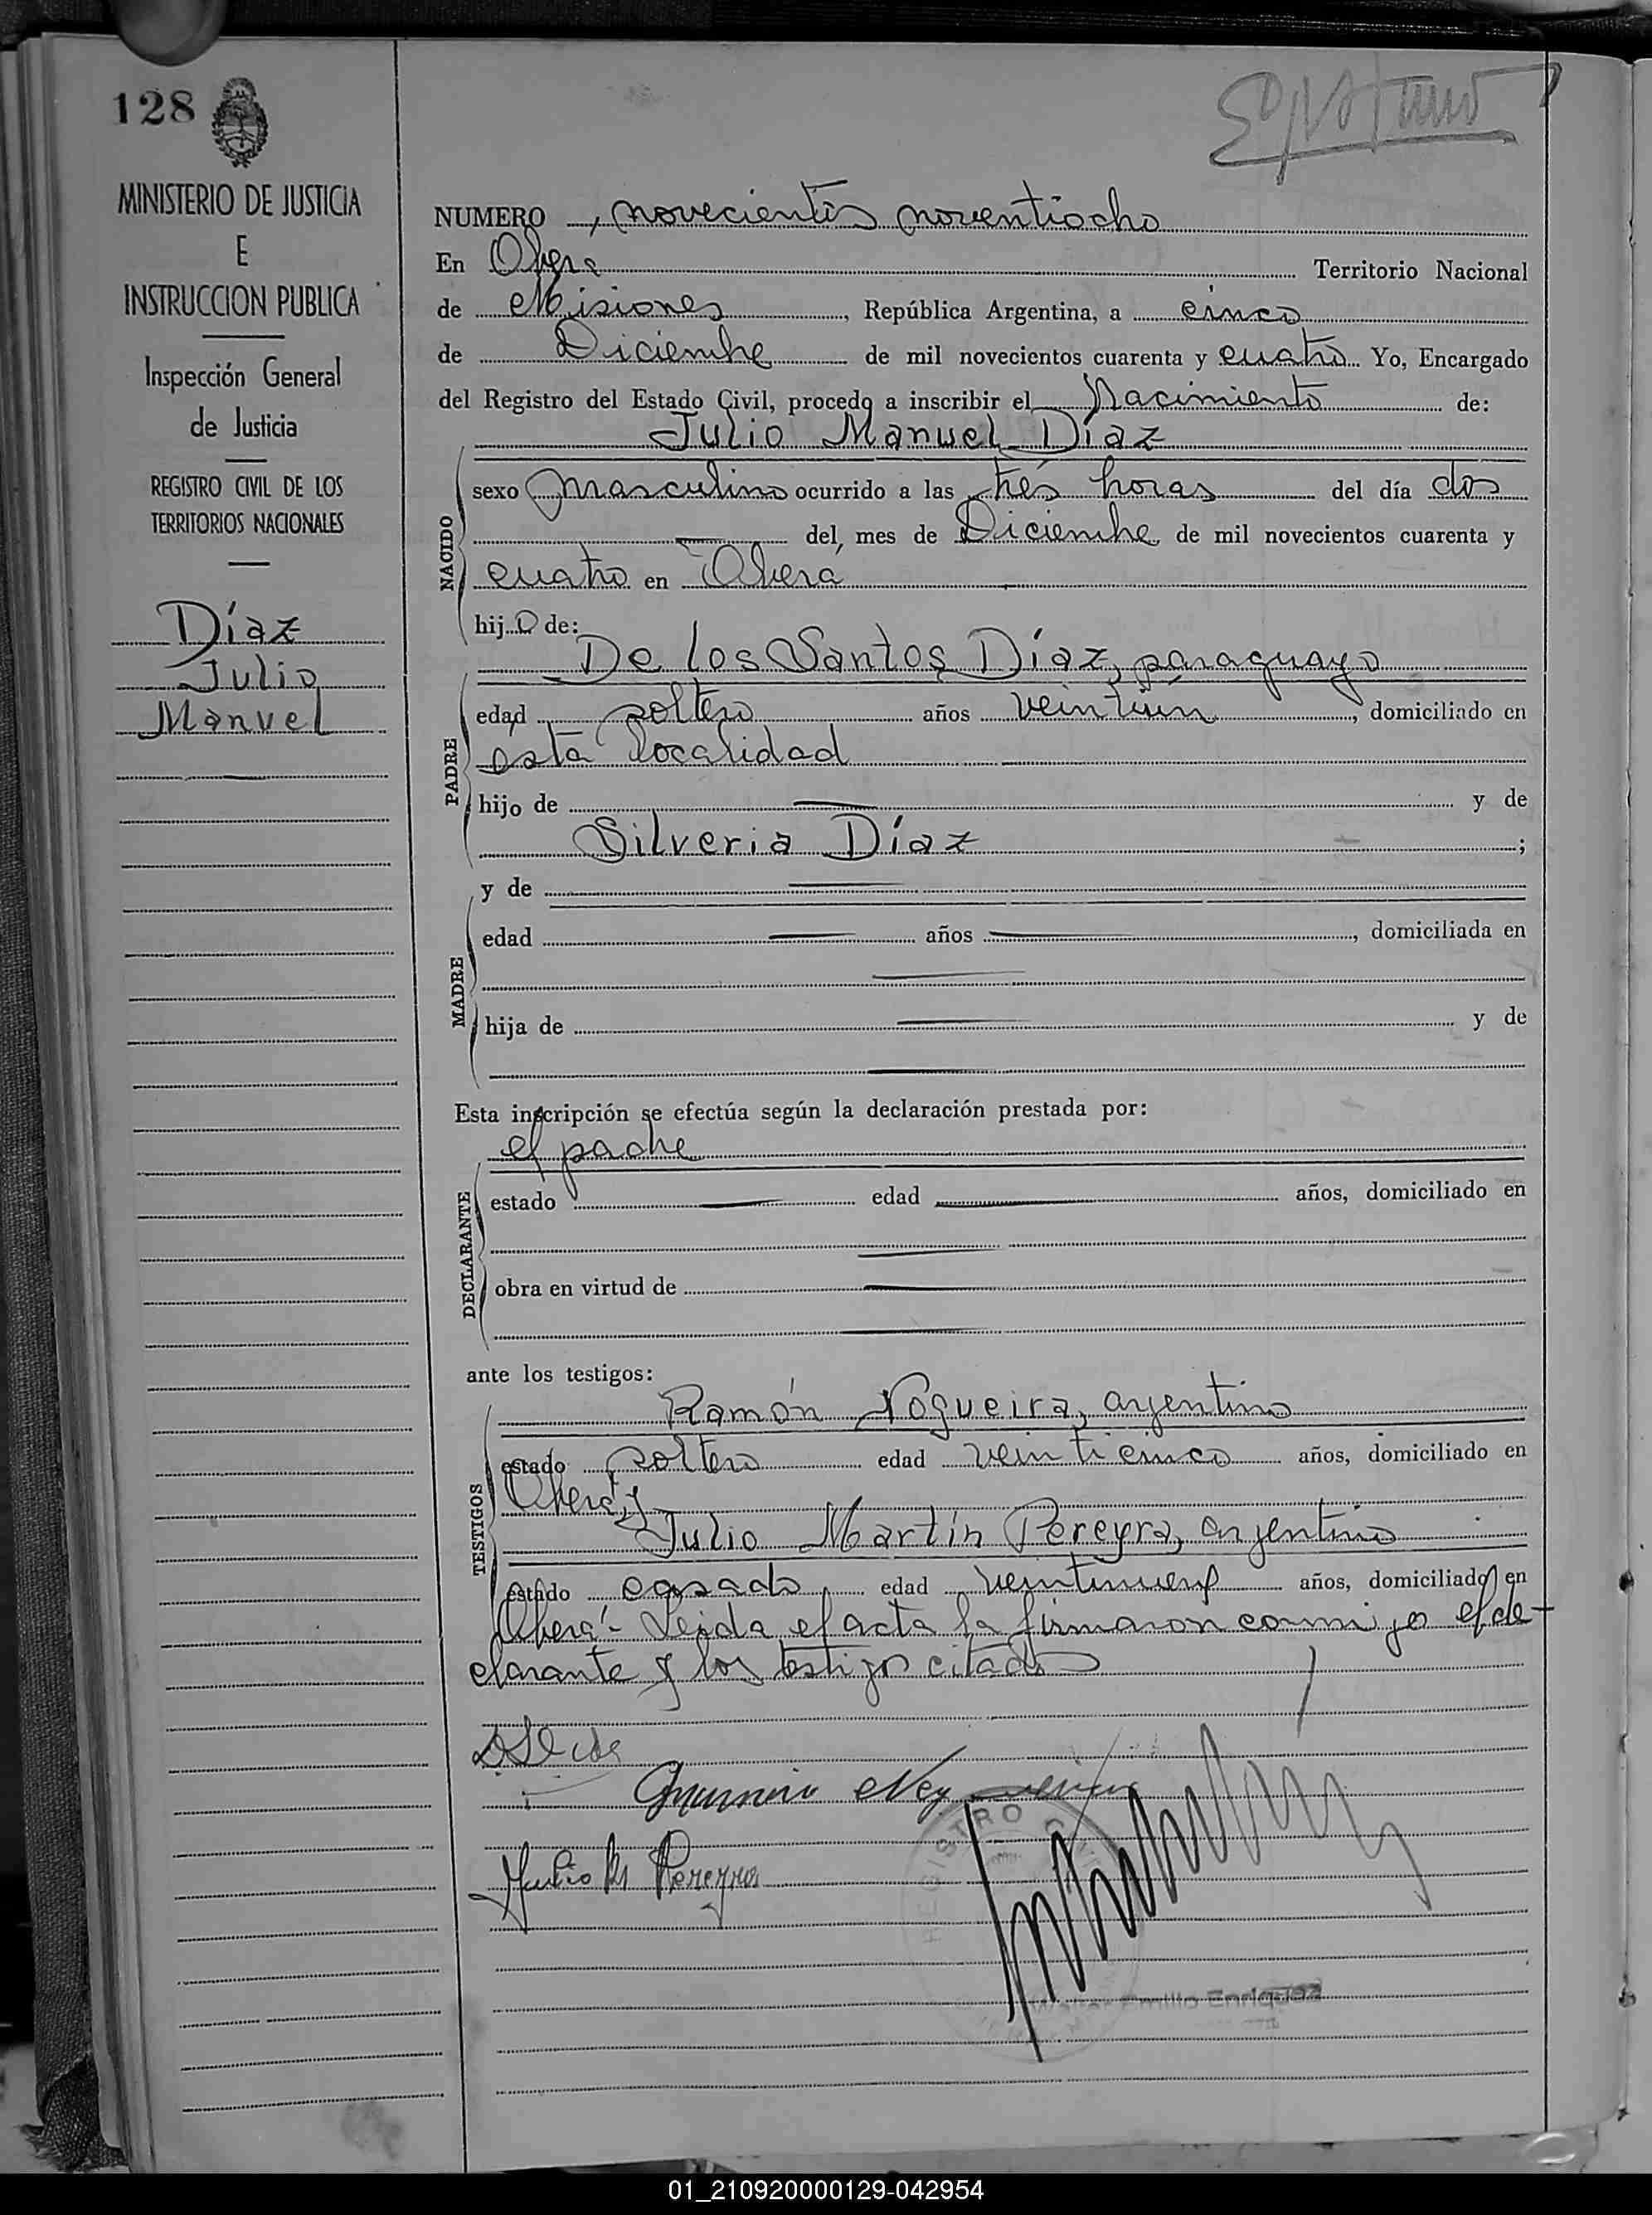 128
MINISTERIO DE JUSTICIA
E
INSTRUCCION PUBLICA
Inspección General
de Justicia
REGISTRO CIVIL DE LOS
TERRITORIOS NACIONALES
Díaz
Julio
Manuel
NUMERO, novecientos noventiocho
En Obera Territorio Nacional
de Misiones, República Argentina, a cinco
de Diciembre de mil novecientos cuarenta y cuatro Yo, Encargado
del Registro del Estado Civil, procedo a inscribir el Nacimiento de:
Julio Manuel Díaz
NACIDO
sexo masculino ocurrido a las trés horas del día dos
del mes de Diciembre de mil novecientos cuarenta y
cuatro en Oberá
hijo de:
De los Santos Díaz, paraguayo
PADRE
edad soltero años veintiún, domiciliado en
esta localidad
hijo de y de
Silveria Díaz ;
y de
MADRE
edad años, domiciliada en
hija de y de
Esta inscripción se efectúa según la declaración prestada por:
el padre
DECLARANTE
estado edad años, domiciliado en
obra en virtud de
ante los testigos:
Ramón Nogueira, argentino
TESTIGOS
estado soltero edad veinticinco años, domiciliado en
Oberá y
Julio Martín Pereyra, argentino
estado casado edad años, domiciliado en
Oberá - Leida el acta la firmaron conmigo el de-
clarante y los testigos citados
Julio M Pereyra
REGISTRO CIVIL
Emilio Enriquez
01_210920000129-042954